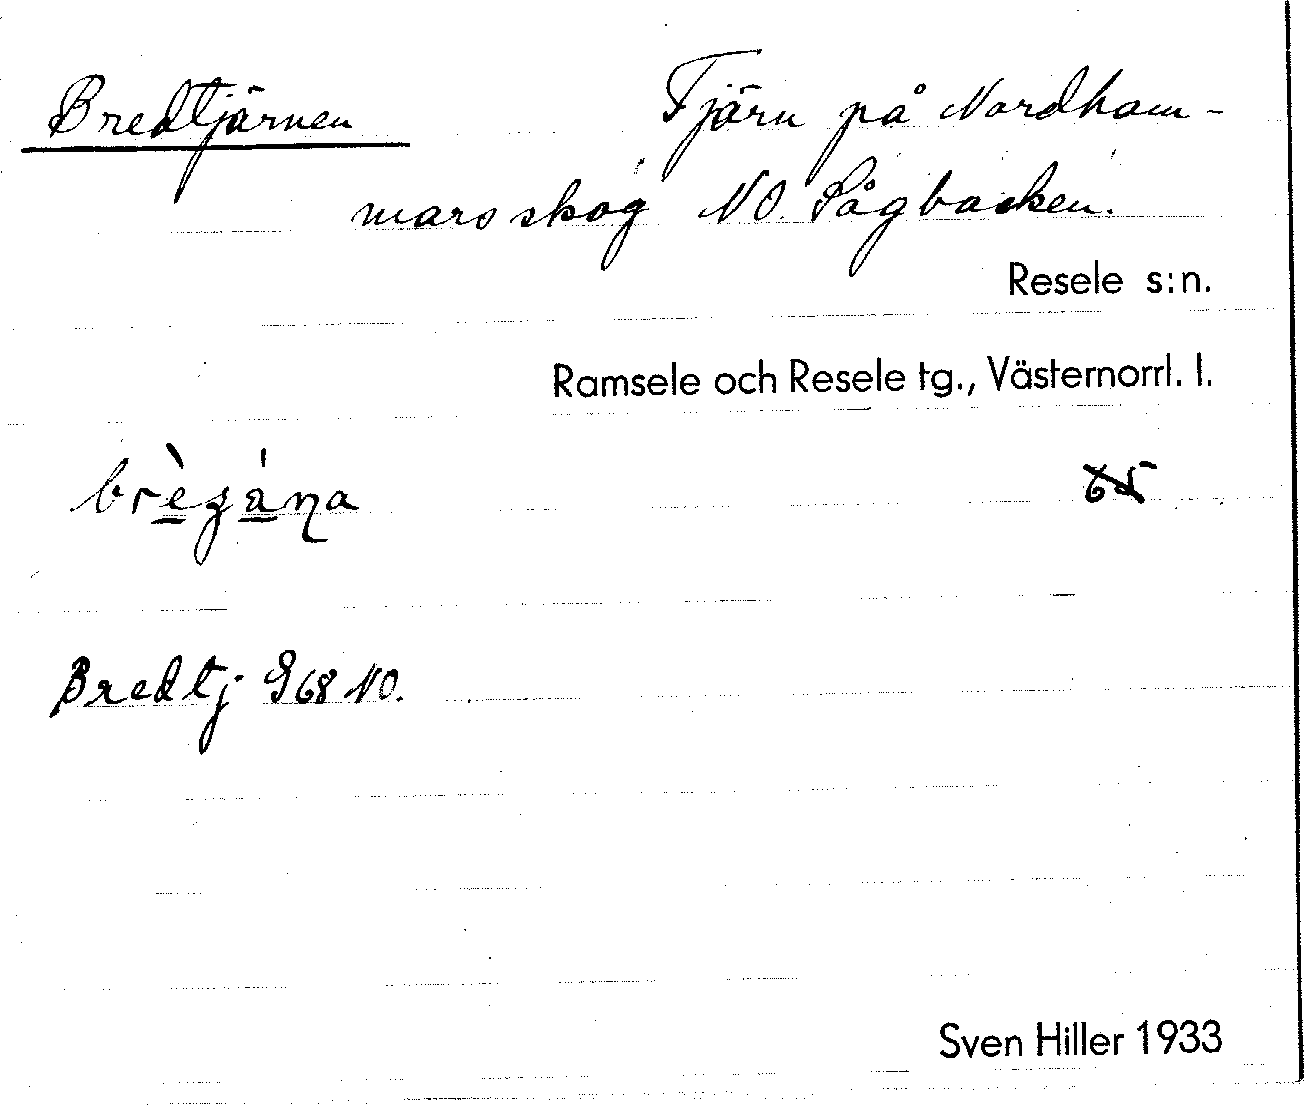 Bredtjärnen Tjärn på Nordham-
mars skog NO. Sågbacken.
Resele s:n.
Ramsele och Resele tg., Västernorrl. l.
Bredtj G68 NO.
Sven Hiller 1933